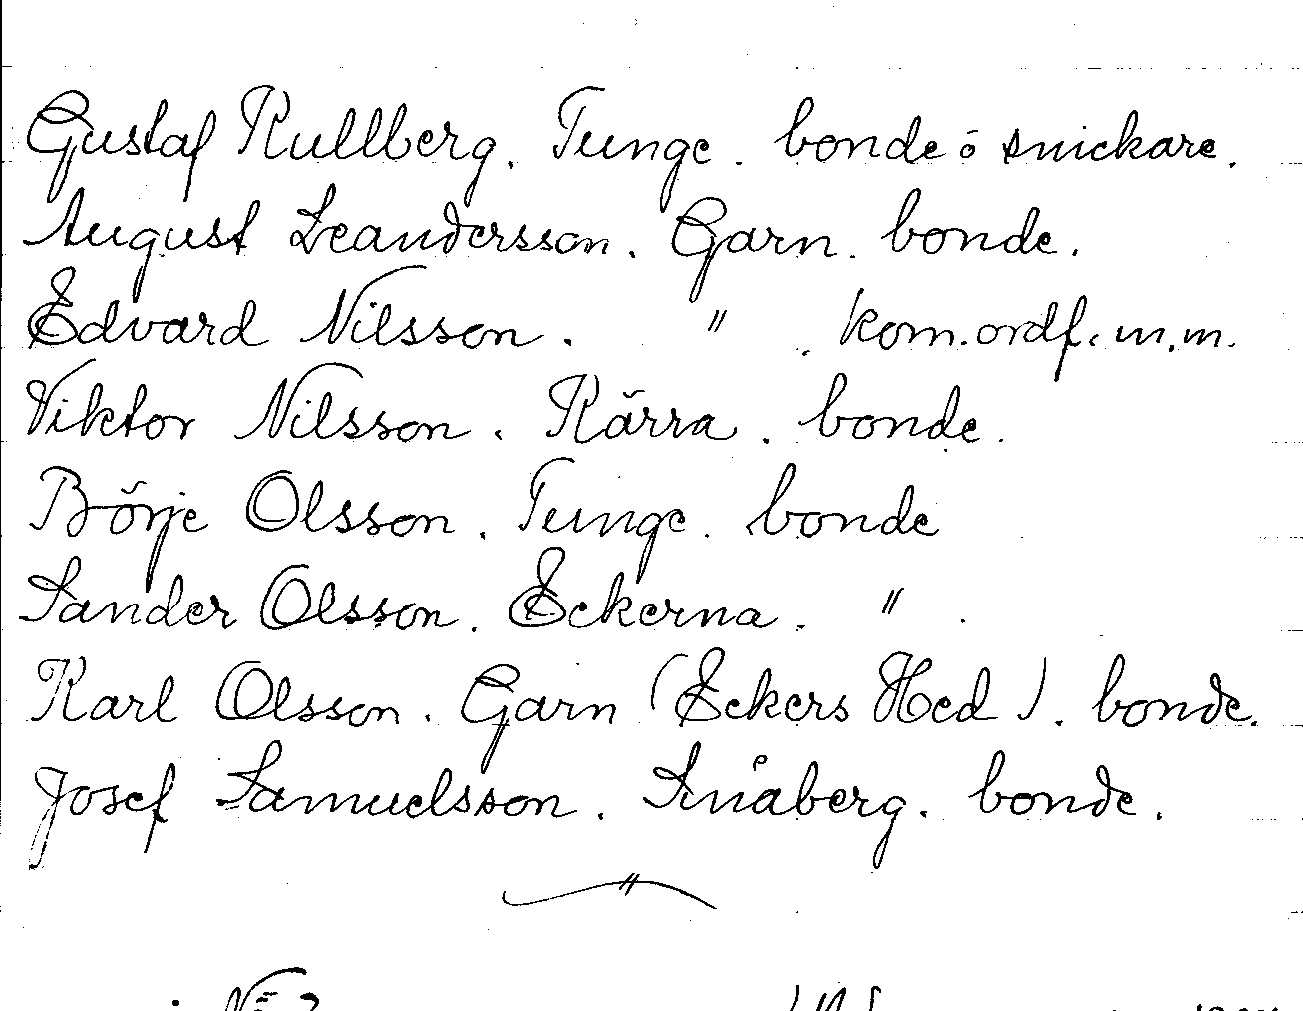 Gustaf Kullberg. Tunge. bonde ó snickare.
August Leandersson. Garn. bonde.
Edvard Nilsson. " . kom.ordf. m.m.
Viktor Nilsson. Kärra. bonde.
Börje Olsson. Tunge. bonde
Sander Olsson. Eckerna. " .
Karl Olsson. Garn (Eckers Hed). bonde.
Josef Samuelsson. Småberg. bonde.